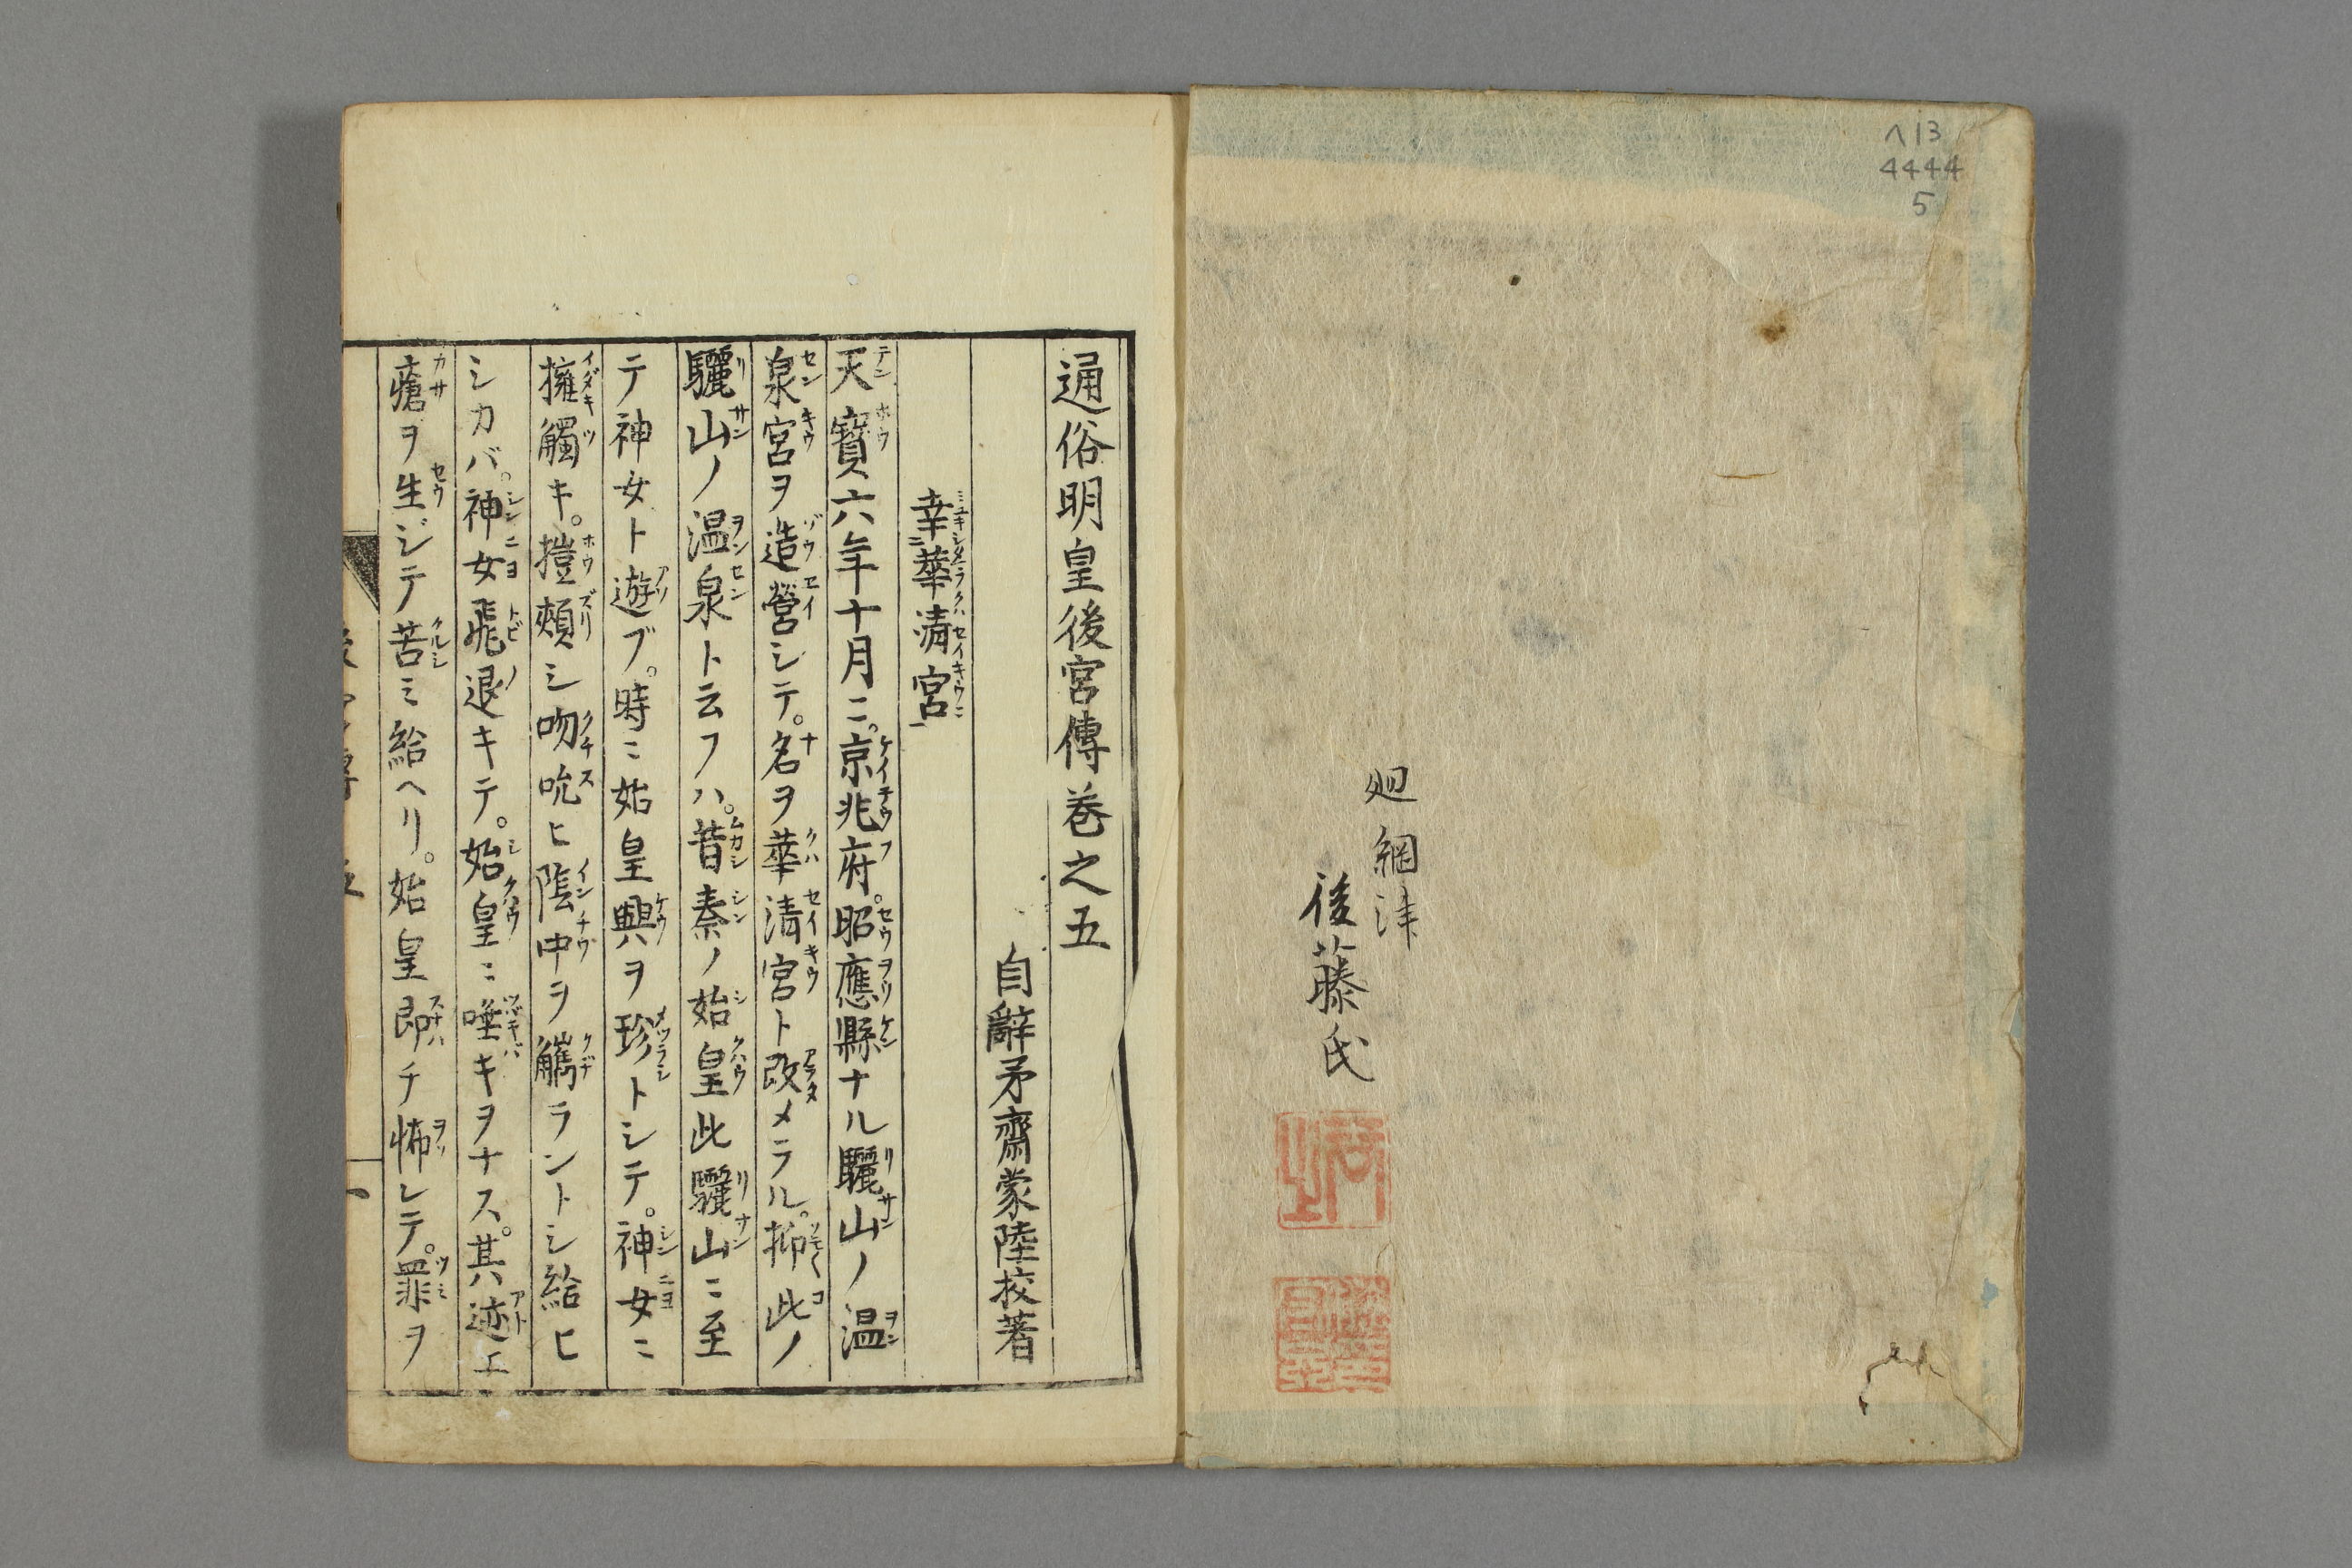 ヘ13
4444
5
廻網津
後藤氏
通俗明皇後宮傳卷之五
自辭矛齋蒙陸校著
幸華清宮
天寶六年十月ニ。京兆府。昭應縣ナル驪山ノ温
泉宮ヲ造營シテ。名ヲ華清宮ト改メラル。抑此ノ
驪山ノ温泉ト云フハ。昔秦ノ始皇此驪山ニ至
テ神女ト遊ブ。時ニ始皇興ヲ珍トシテ。神女ニ
擁觸キ。摚頰シ吻吮ヒ陰中ヲ觸ラントシ給ヒ
シカバ。神女飛退キテ。始皇ニ唾キヲナス。其迹エ
瘡ヲ生ジテ苦ミ給ヘリ。始皇即チ怖レテ。罪ヲ